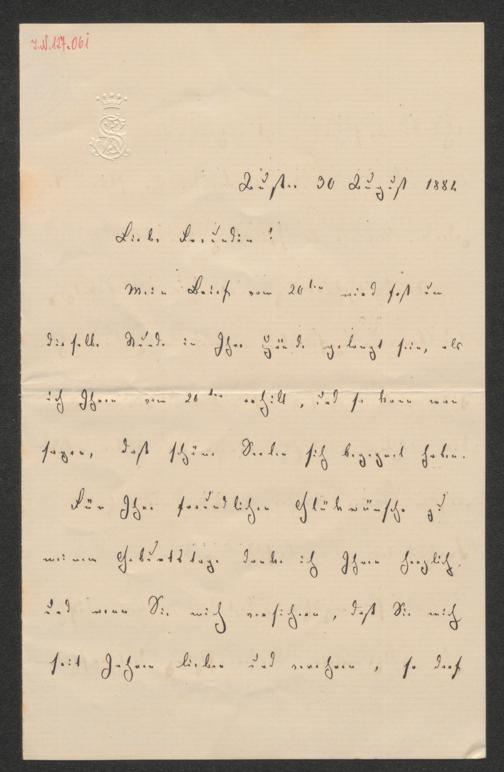 I.N.127.061
Aussee 30 August 1882
Liebe Freundin!
Mein Brief vom 20ten wird fast um
dieselbe Stunde in Ihre Hände gelangt sein, als
ich Ihren vom 26ten erhielt, und so kann man
sagen, daß schöne Seelen sich begegnet haben.
Für Ihre freundlichen Glückwünsche zu
meinem Geburtstage danke ich Ihnen herzlich,
und wenn Sie mich versichern, daß Sie mich
seit Jahren lieben und verehren, so darf